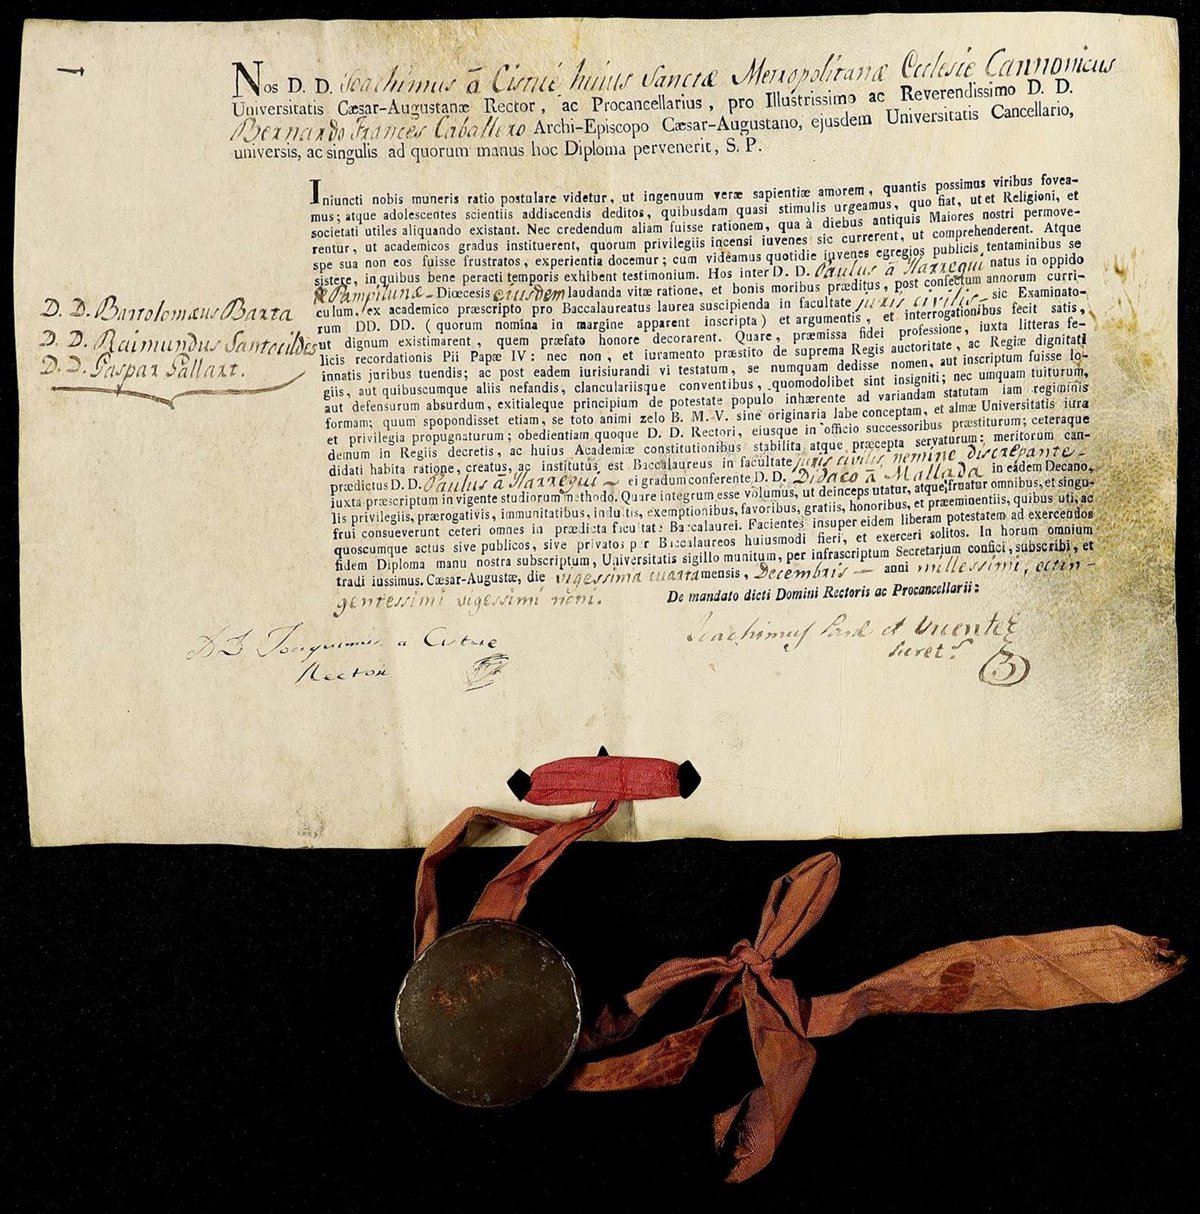 Nos D. D. Joachimus á Cistué huius Sanctæ Metropolitanæ Ecclesie Cannonicus
Universitatis Cæsar-Augustanæ Rector, ac Procancellarius, pro Illustrissimo ac Reverendissimo D. D.
Bernardo Frances Caballero Archi-Episcopo Cæsar-Augustano, ejusdem Universitatis Cancellario,
universis, ac singulis ad quorum manus hoc Diploma pervenerit, S. P.
Iniuncti nobis muneris ratio postulare videtur, ut ingenuum veræ sapientiæ amorem, quantis possimus viribus fovea-
mus; atque adolescentes scientiis addiscendis deditos, quibusdam quasi stimulis urgeamus, quo fiat, ut et Religioni, et
societati utiles aliquando existant. Nec credendum aliam fuisse rationem, qua à diebus antiquis Maiores nostri permove-
rentur, ut academicos gradus instituerent, quorum privilegiis incensi iuvenes sic currerent, ut comprehenderent. Atque
spe sua non eos fuisse frustratos, experientia docemur; cum videamus quotidie iuvenes egregios publicis tentaminibus se
sistere, in quibus bene peracti temporis exhibent testimonium. Hos inter D. D. Paulus á Ilarregui natus in oppido
Pampilunæ Diœcesis eiusdem laudanda vitæ ratione, et bonis moribus præditus, post confectum annorum curri-
culum, ex academico præscripto pro Baccalaureatus laurea suscipienda in facultate juris civilis sic Examinato-
rum DD. DD. (quorum nomina in margine apparent inscripta) et argumentis, et interrogationibus fecit satis,
ut dignum existimarent, quem præfato honore decorarent. Quare, præmissa fidei professione, iuxta litteras fe-
licis recordationis Pii Papæ IV: nec non, et iuramento præstito de suprema Regis auctoritate, ac Regiæ dignitati
innatis juribus tuendis; ac post eadem iurisiurandi vi testatum, se numquam dedisse nomen, aut inscriptum fuisse lo-
giis, aut quibuscumque aliis nefandis, clanculariisque conventibus, quomodolibet sint insigniti; nec umquam tuiturum,
aut defensurum absurdum, exitialeque principium de potestate populo inhærente ad variandam statutam iam regiminis
formam; quum spopondisset etiam, se toto animi zelo B. M. V. sine originaria labe conceptam, et almæ Universitatis iura
et privilegia propugnaturum; obedientiam quoque D. D. Rectori, eiusque in officio successoribus præstiturum; ceteraque
demum in Regiis decretis, ac huius Academiæ constitutionibus stabilita atque præcepta servaturum: meritorum can-
didati habita ratione, creatus, ac institutus est Baccalaureus in facultate juris civilis, nemine discrepante
prædictus D. D. Paulus á Ilarregui ei gradum conferente D. D. Didaco á Mallada in eâdem Decano,
iuxta præscriptum in vigente studiorum methodo. Quare integrum esse volumus, ut deinceps utatur, atque fruatur omnibus, et singu-
lis privilegiis, prærogativis, immunitatibus, indultis, exemptionibus, favoribus, gratiis, honoribus, et præeminentiis, quibus uti, ac
frui consueverunt ceteri omnes in prædicta facultate Baccalaurei. Facientes insuper eidem liberam potestatem ad exercendos
quoscumque actus sive publicos, sive privatos per Baccalaureos huiusmodi fieri, et exerceri solitos. In horum omnium
fidem Diploma manu nostra subscriptum, Universitatis sigillo munitum, per infrascriptum Secretarium confici, subscribi, et
tradi iussimus. Cæsar-Augustæ, die vigessima cuarta mensis, Decembris anni millessimi, octin-
gentessimi vigessimi noni.
De mandato dicti Domini Rectoris ac Procancellarii:
D. D. Bartolomæus Barta
D. D. Raimundus Santocildes
D. D. Gaspar Gallart.
Joaquimus a Cistue
Rector
Joachimus et Vicente
Secret.s